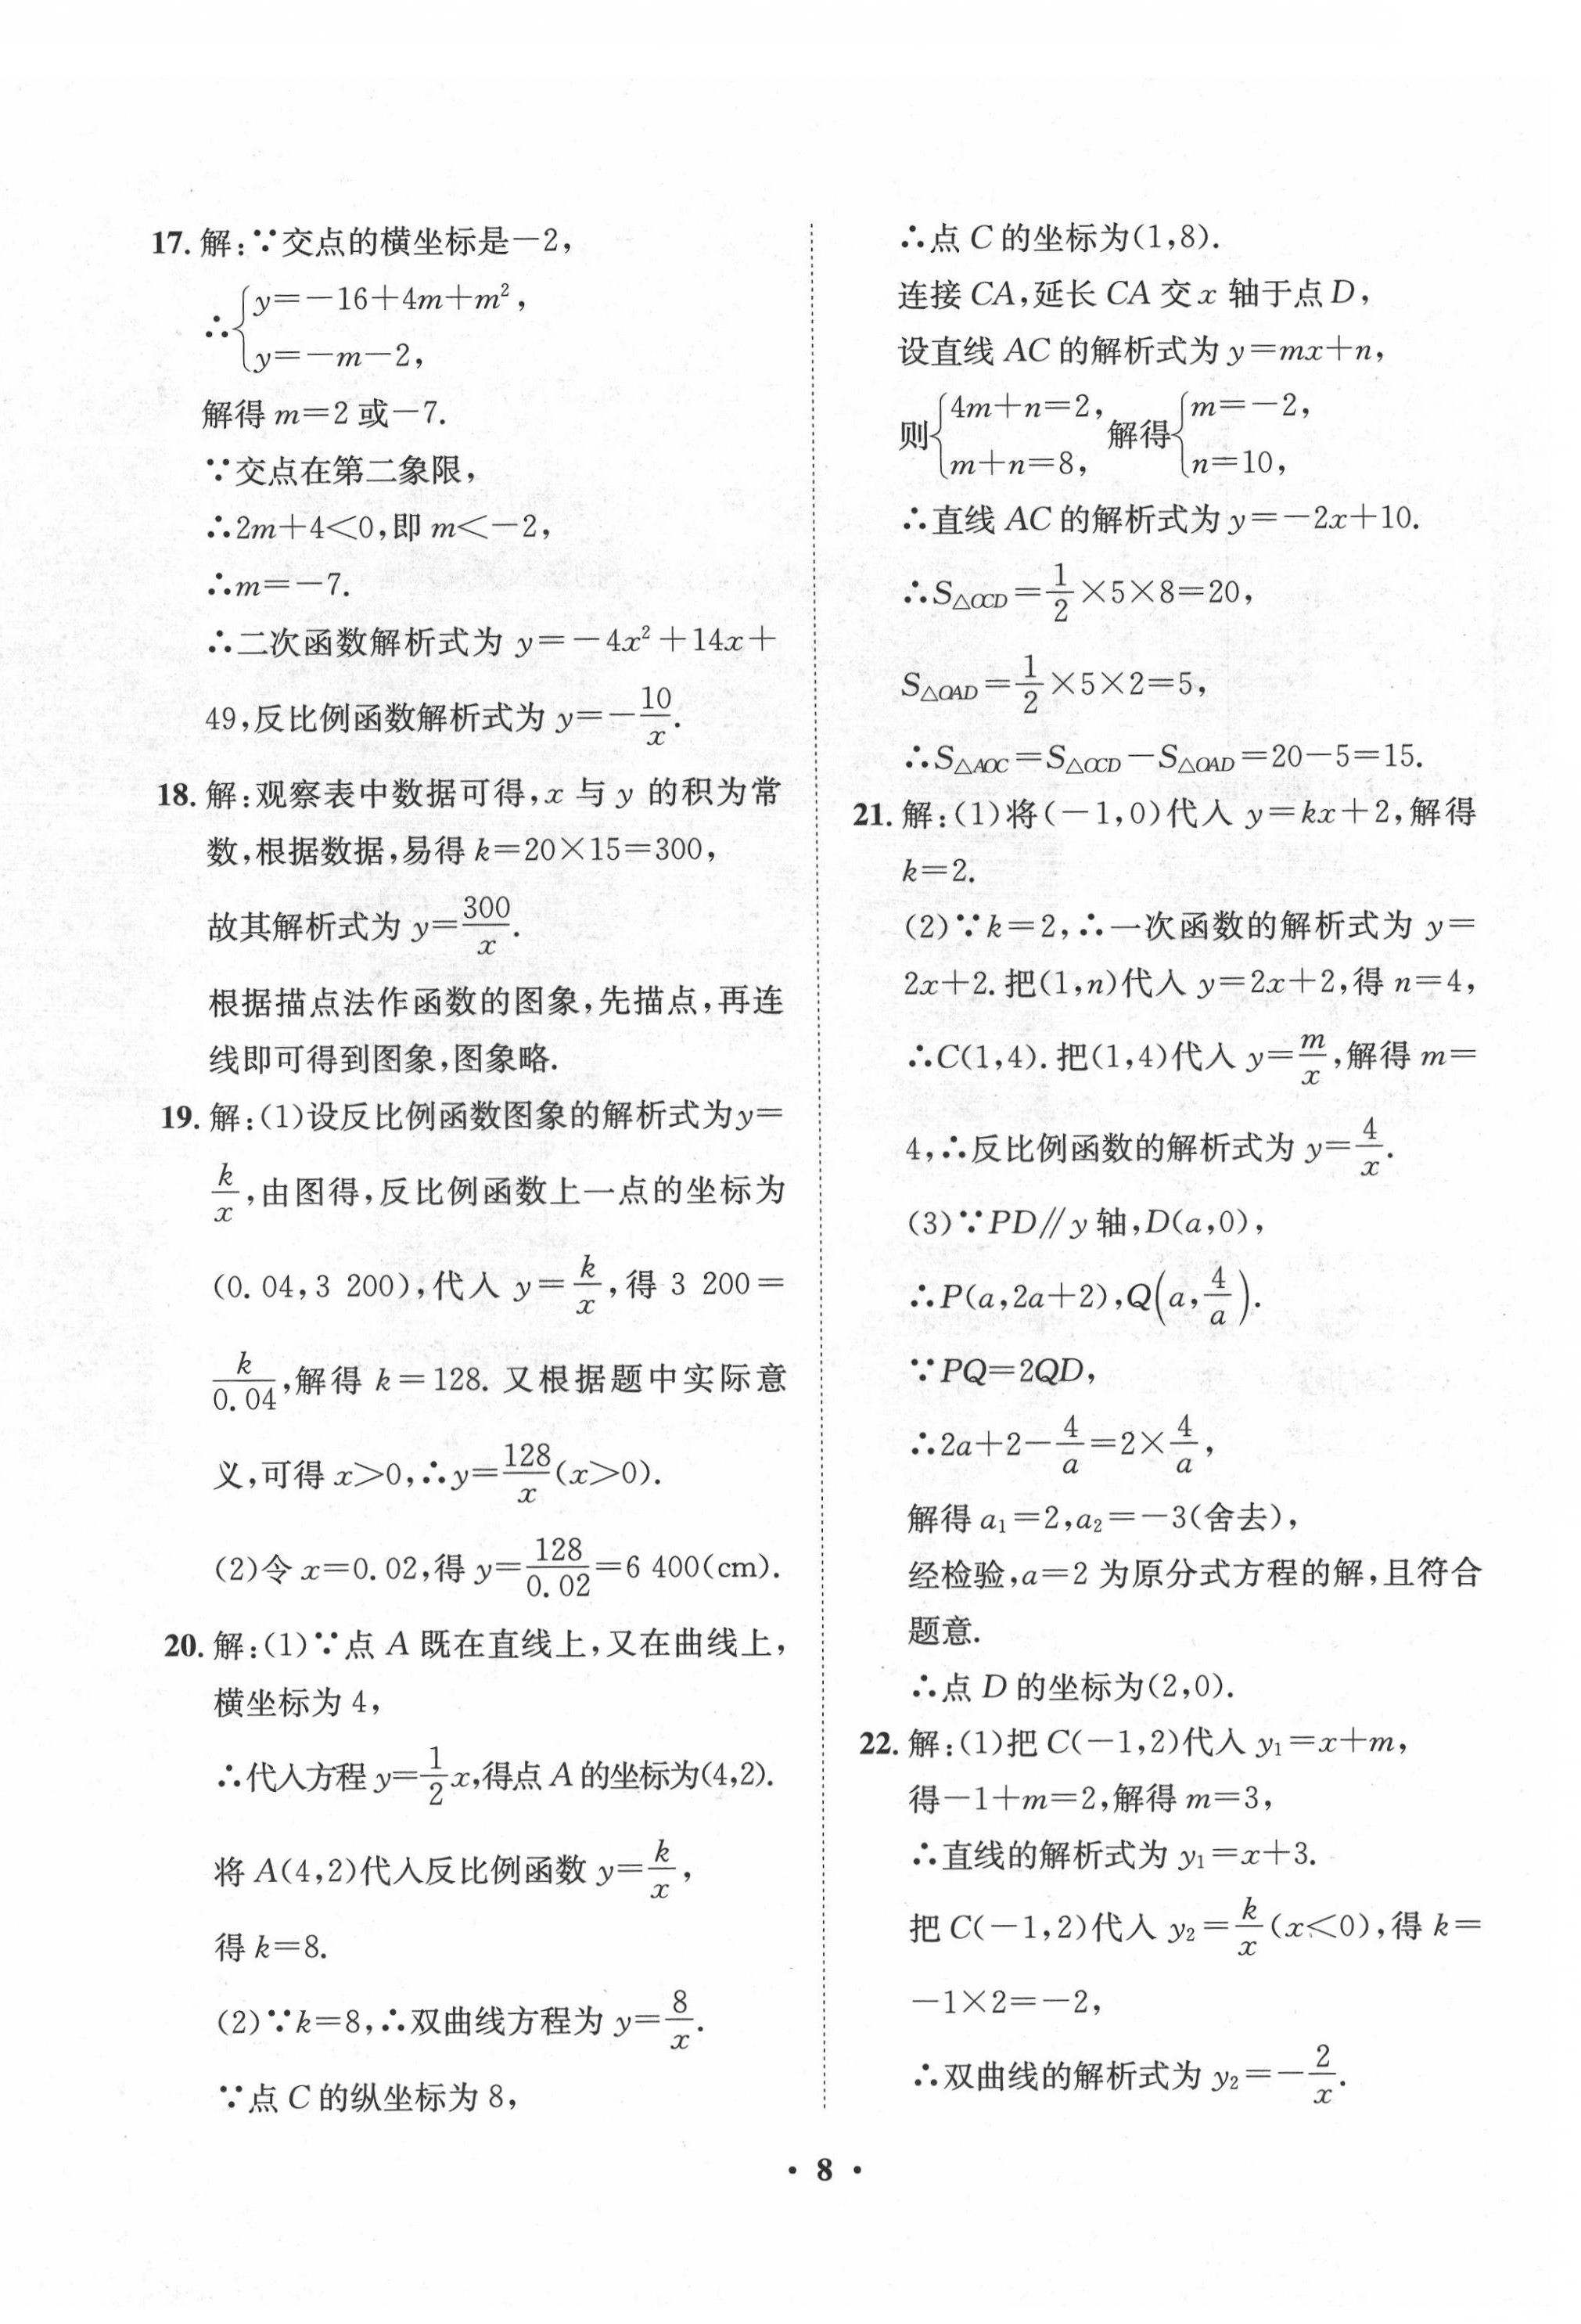 17. 解:∵交点的横坐标是－2,
∴{y=－16+4m+m²,
y=－m－2,
解得 m=2 或－7.
∵交点在第二象限,
∴2m+4<0,即 m<－2,
∴m=－7.
∴二次函数解析式为 y=－4x²+14x+
49,反比例函数解析式为 y=－10/x.
18. 解:观察表中数据可得,x 与 y 的积为常
数,根据数据,易得 k=20×15=300,
故其解析式为 y=300/x.
根据描点法作函数的图象,先描点,再连
线即可得到图象,图象略.
19. 解:(1)设反比例函数图象的解析式为y=
k/x,由图得,反比例函数上一点的坐标为
(0.04,3 200),代入 y=k/x,得 3 200=
k/0.04,解得 k=128. 又根据题中实际意
义,可得 x>0,∴y=128/x(x>0).
(2)令 x=0.02,得 y=128/0.02=6 400(cm).
20. 解:(1)∵点 A 既在直线上,又在曲线上,
横坐标为 4,
∴代入方程 y=1/2x,得点 A 的坐标为(4,2).
将 A(4,2)代入反比例函数 y=k/x,
得 k=8.
(2)∵k=8,∴双曲线方程为 y=8/x.
∵点 C 的纵坐标为 8,
∴点 C 的坐标为(1,8).
连接 CA,延长 CA 交 x 轴于点 D,
设直线 AC 的解析式为 y=mx+n,
则{4m+n=2, m+n=8, 解得{m=－2, n=10,
∴直线 AC 的解析式为 y=－2x+10.
∴S△OCD=1/2×5×8=20,
S△OAD=1/2×5×2=5,
∴S△AOC=S△OCD－S△OAD=20－5=15.
21. 解:(1)将(－1,0)代入 y=kx+2,解得
k=2.
(2)∵k=2,∴一次函数的解析式为 y=
2x+2. 把(1,n)代入 y=2x+2,得 n=4,
∴C(1,4). 把(1,4)代入 y=m/x,解得 m=
4,∴反比例函数的解析式为 y=4/x.
(3)∵PD∥y 轴,D(a,0),
∴P(a,2a+2),Q(a,4/a).
∵PQ=2QD,
∴2a+2－4/a=2×4/a,
解得 a₁=2,a₂=－3(舍去),
经检验,a=2 为原分式方程的解,且符合
题意.
∴点 D 的坐标为(2,0).
22. 解:(1)把 C(－1,2)代入 y₁=x+m,
得－1+m=2,解得 m=3,
∴直线的解析式为 y₁=x+3.
把 C(－1,2)代入 y₂=k/x(x<0),得 k=
－1×2=－2,
∴双曲线的解析式为 y₂=－2/x.
· 8 ·